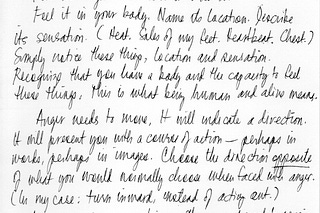 Feel it in your body. Name its location. Describe
its sensation. (Heat. Soles of my feet. Heartbeat. Chest.)
Simply notice these things, location and sensation.
Recognize that you have a body and the capacity to feel
these things, This is what being human and alive means.
Anger needs to move, It will indicate a direction.
It will present you with a course of action — perhaps in
words, perhaps in images. Choose the direction opposite
of what you would normally choose when faced with anger.
(In my case: turn inward, instead of acting out.)